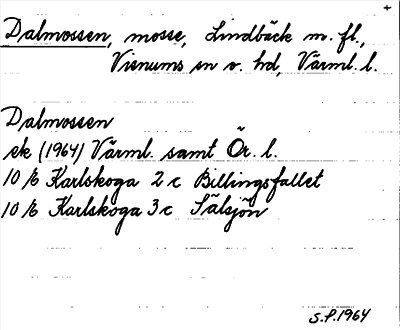 +
Dalmossen, mosse, Lindbäck m. fl.,
Visnums sn o. hd, Värml. l.
Dalmossen
ek (1964) Värml. samt Ör. l.
10/6 Karlskoga 2 c Billingsfallet
10/6 Karlskoga 3 c Sälsjön
S.P. 1964